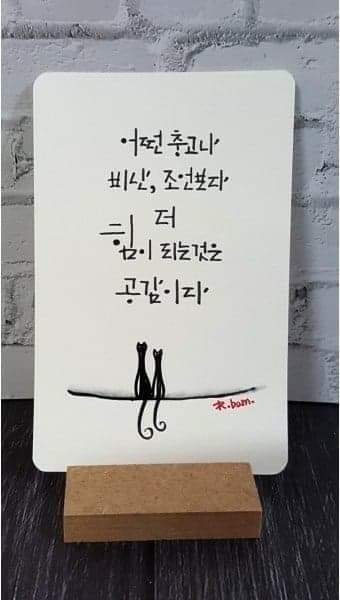 어떤 충고나
조언보다
더
힘이 되는것은
공감이다